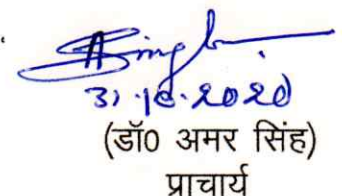 Singh
31.10.2020
(डॉ0 अमर सिंह)
प्राचार्य